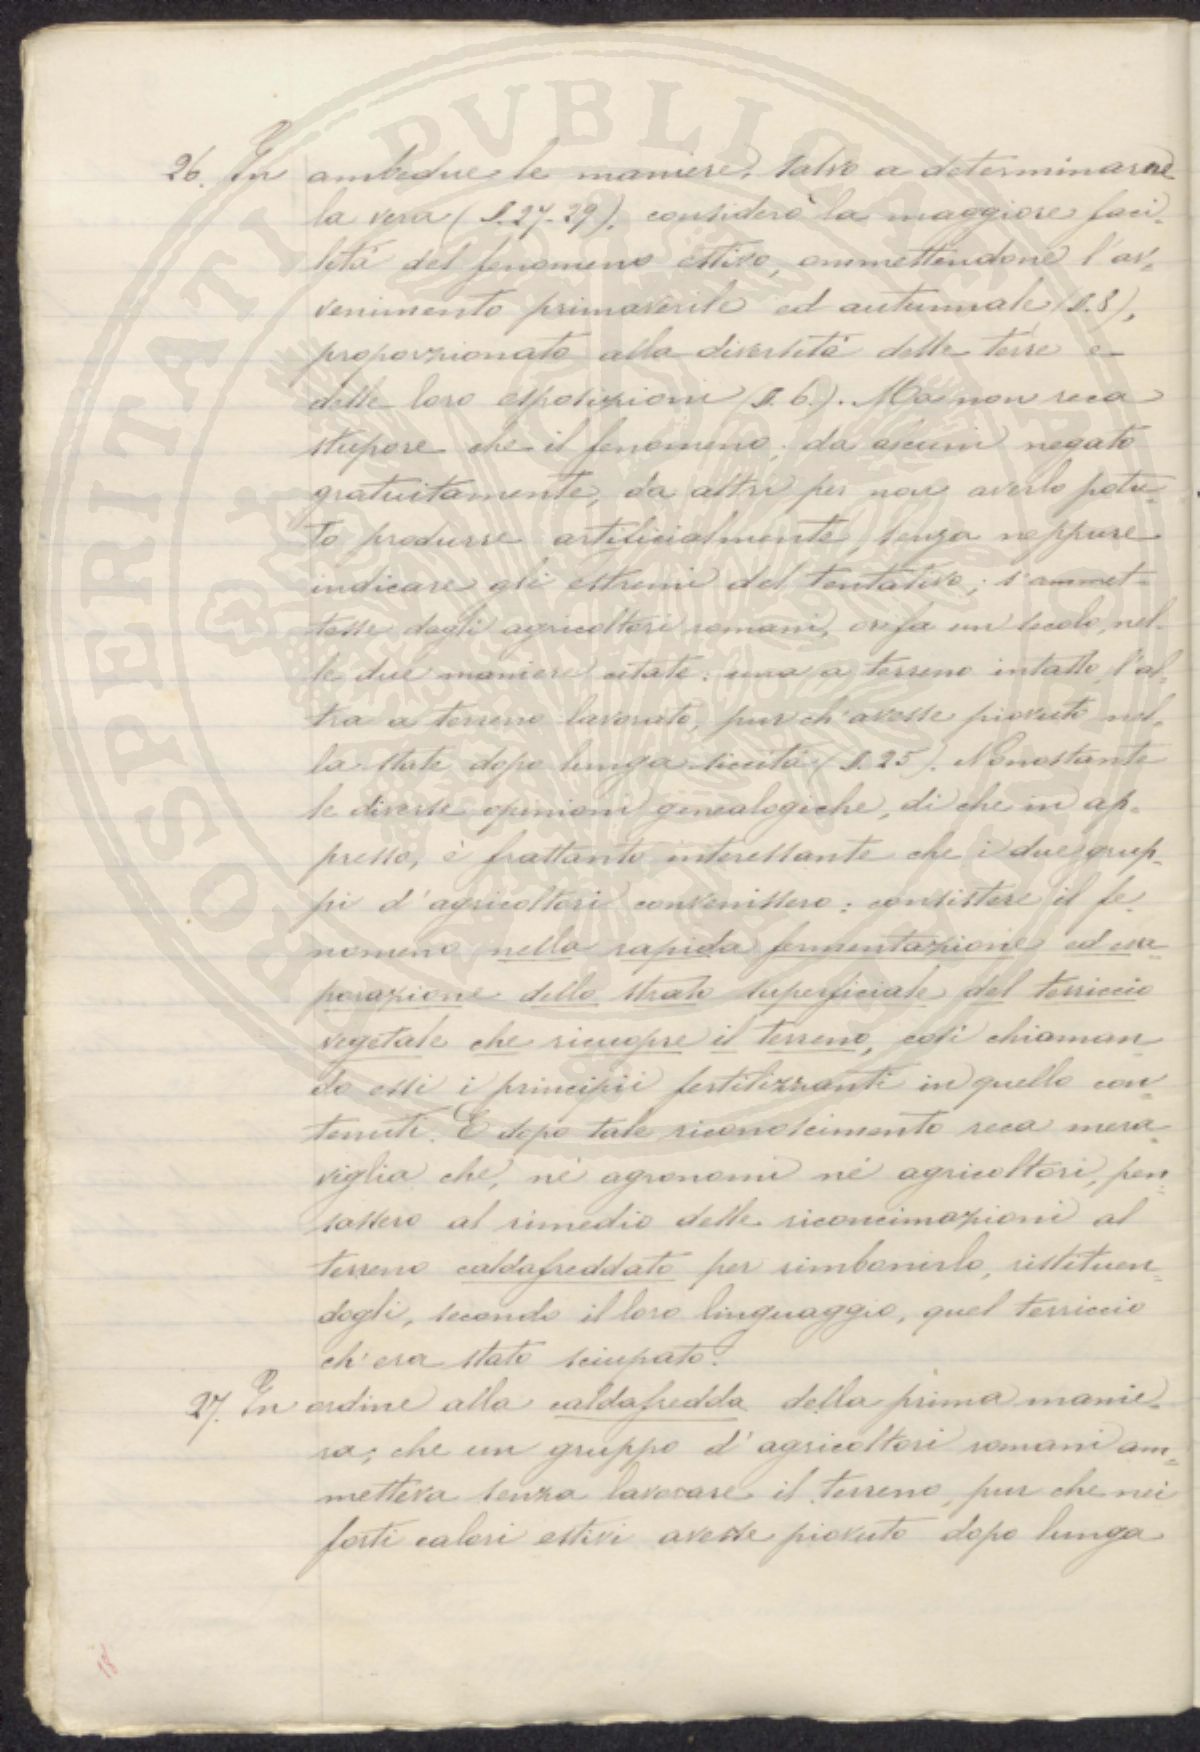 26. In ambedue le maniere, salvo a determinarne
la vera (§. 27-29), considero la maggiore faci-
lità del fenomeno estivo, ammettendone l'av-
venimento primaverile ed autunnale (§. 8),
proporzionato alla diversità delle terre e
delle loro esposizioni (§. 6.). Ma non reca
stupore che il fenomeno, da alcuni negato
gratuitamente, da altri per non averlo potu-
to produrre artificialmente, senza neppure
indicare gli estremi del tentativo; s'ammet-
tesse dagli agricoltori romani, or fa un secolo, nel-
le due maniere citate: una a terreno intatto, l'al-
tra a terreno lavorato, pur ch'avesse piovuto nel-
la state dopo lunga siccità (§. 25). Nonostante
le diverse opinioni genealogiche, di che in ap-
presso, è frattanto interessante che i due grup-
pi d'agricoltori convenissero: consistere il fe-
nomeno nella rapida fermentazione ed eva-
porazione dello strato superficiale del terriccio
vegetale che ricuopre il terreno, così chiaman-
do essi i principii fertilizzanti in quello con-
tenuti. E dopo tale riconoscimento reca mera-
viglia che, nè agronomi nè agricoltori, pen-
sassero al rimedio delle riconcimazioni al
terreno caldafreddato per rimbonirlo, restituen-
dogli, secondo il loro linguaggio, quel terriccio
ch'era stato sciupato.
27. In ordine alla caldafredda della prima manie-
ra, che un gruppo d'agricoltori romani am-
metteva senza lavorare il terreno, pur che nei
forti calori estivi avesse piovuto dopo lunga
18
PROSPERITATI PVBLICAE